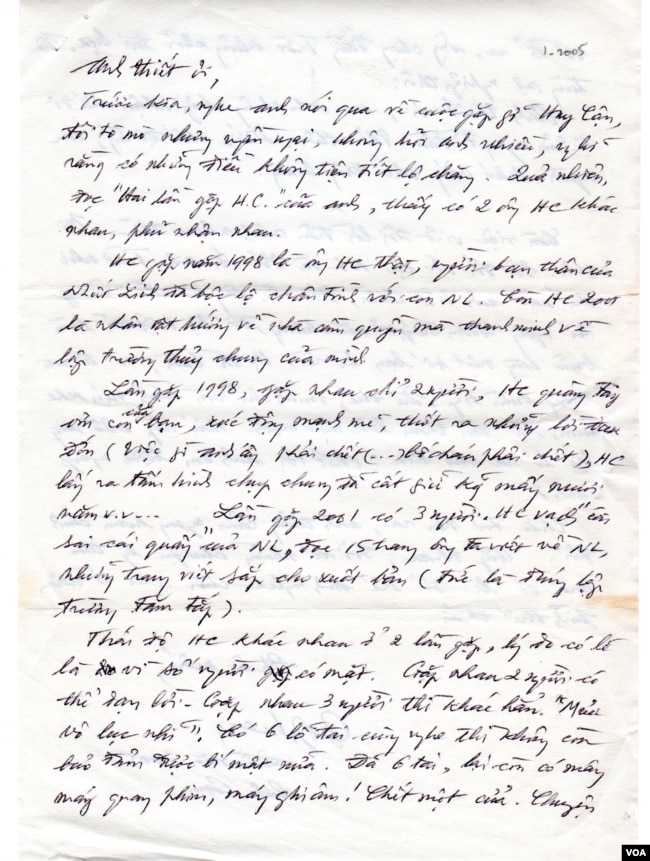 1-2005
Anh Thiết ơi,
Trước kia, nghe anh nói qua về cuộc gặp gỡ Huy Cận,
tôi tò mò nhưng ngần ngại, không hỏi anh nhiều, nghĩ
rằng có những điều không tiện tiết lộ chăng. Quả nhiên,
đọc "Hai lần gặp H.C." của anh, thấy có 2 ông HC khác
nhau, phủ nhận nhau.
HC gặp năm 1998 là ông HC thật, người bạn thân của
Nhất Linh đã bộc lộ chân tình với con NL. Còn HC 2001
là nhân vật hướng về nhà cầm quyền mà thanh minh về
lập trường thủy chung của mình.
Lần gặp 1998, gặp nhau chỉ 2 người, HC quàng tay
con của bạn, xúc động mạnh mẽ, thốt ra những lời đau
đớn (Việc gì anh ấy phải chết (...) phải chết), HC
lấy ra tấm hình chụp chung đã cất giữ kỹ mấy mươi
năm v.v... Lần gặp 2001 có 3 người. HC vạch "cái
sai cái quấy" của NL, đọc 15 trang ông đã viết về NL,
những trang viết sắp cho xuất bản (thế là đúng lập
trường tăm tắp).
Thái độ HC khác nhau ở 2 lần gặp, lý do có lẽ
là vì số người có mặt. Gặp nhau 2 người có
thể đan lời. Gặp nhau 3 người thì khác hẳn. "Mưu
vô lục nhĩ". Có 6 lỗ tai cùng nghe thì không còn
bảo đảm được bí mật nữa. Đã 6 tai, lại còn có máy
máy quay phim, máy ghi âm! Chết một cửa. Chuyện
VOA